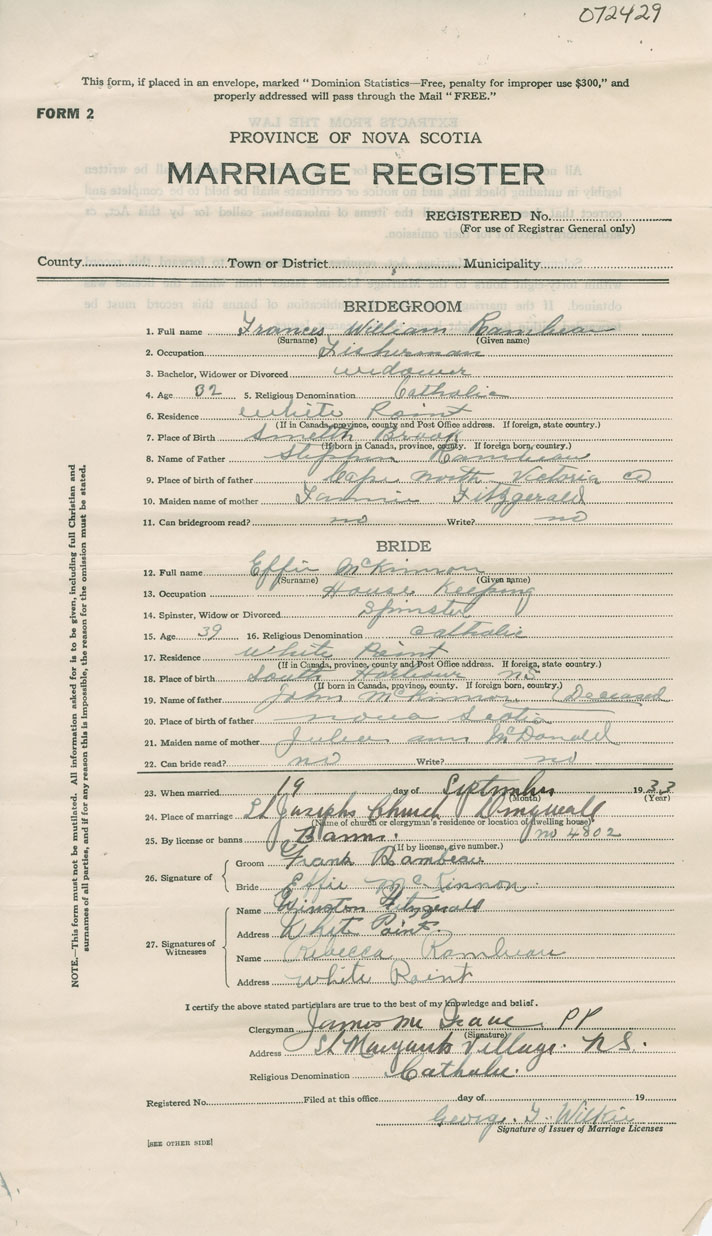 072429
This form, if placed in an envelope, marked "Dominion Statistics—Free, penalty for improper use $300," and
properly addressed will pass through the Mail "FREE."
FORM 2
PROVINCE OF NOVA SCOTIA
MARRIAGE REGISTER
REGISTERED No.
(For use of Registrar General only)
County Town or District Municipality
BRIDEGROOM
1. Full name Frances William Rambeau
(Surname) (Given name)
2. Occupation Fisherman
3. Bachelor, Widower or Divorced widower
4. Age 32 5. Religious Denomination Catholic
6. Residence White Point
(If in Canada, province, county and Post Office address. If foreign, state country.)
7. Place of Birth Smelth Brook
(If born in Canada, province, county. If foreign born, country.)
8. Name of Father Stephen Rambeau
9. Place of birth of father Cape north Victoria co
10. Maiden name of mother Fannie Fitzgerald
11. Can bridegroom read? no Write? no
BRIDE
12. Full name Effie McKinnon
(Surname) (Given name)
13. Occupation House Keeping
14. Spinster, Widow or Divorced Spinster
15. Age 39 16. Religious Denomination Catholic
17. Residence White Point
(If in Canada, province, county and Post Office address. If foreign, state country.)
18. Place of birth South Harbour NS
(If born in Canada, province, county. If foreign born, country.)
19. Name of father John McKinnon (Deceased
20. Place of birth of father nova Scotia
21. Maiden name of mother Julia ann McDonald
22. Can bride read? no Write? no
23. When married 19 day of September 1933
(Month) (Year)
24. Place of marriage St Josephs Church Dingwall
(Name of church or clergyman's residence or location of dwelling house)
25. By license or banns Banns. no 4802
(If by license, give number.)
26. Signature of
Groom Frank Rambeau
Bride Effie McKinnon
27. Signatures of Witnesses
Name Fitzgerald
Address White Point.
Name Rebecca Rambeau
Address White Point
I certify the above stated particulars are true to the best of my knowledge and belief.
Clergyman James M PP
(Signature)
Address St Margarets Village. N.S.
Religious Denomination Catholic.
Registered No. Filed at this office day of 19
George. T. Wilkie
Signature of Issuer of Marriage Licenses
[SEE OTHER SIDE]
NOTE.—This form must not be mutilated. All information asked for is to be given, including full Christian and
surnames of all parties, and if for any reason this is impossible, the reason for the omission must be stated.